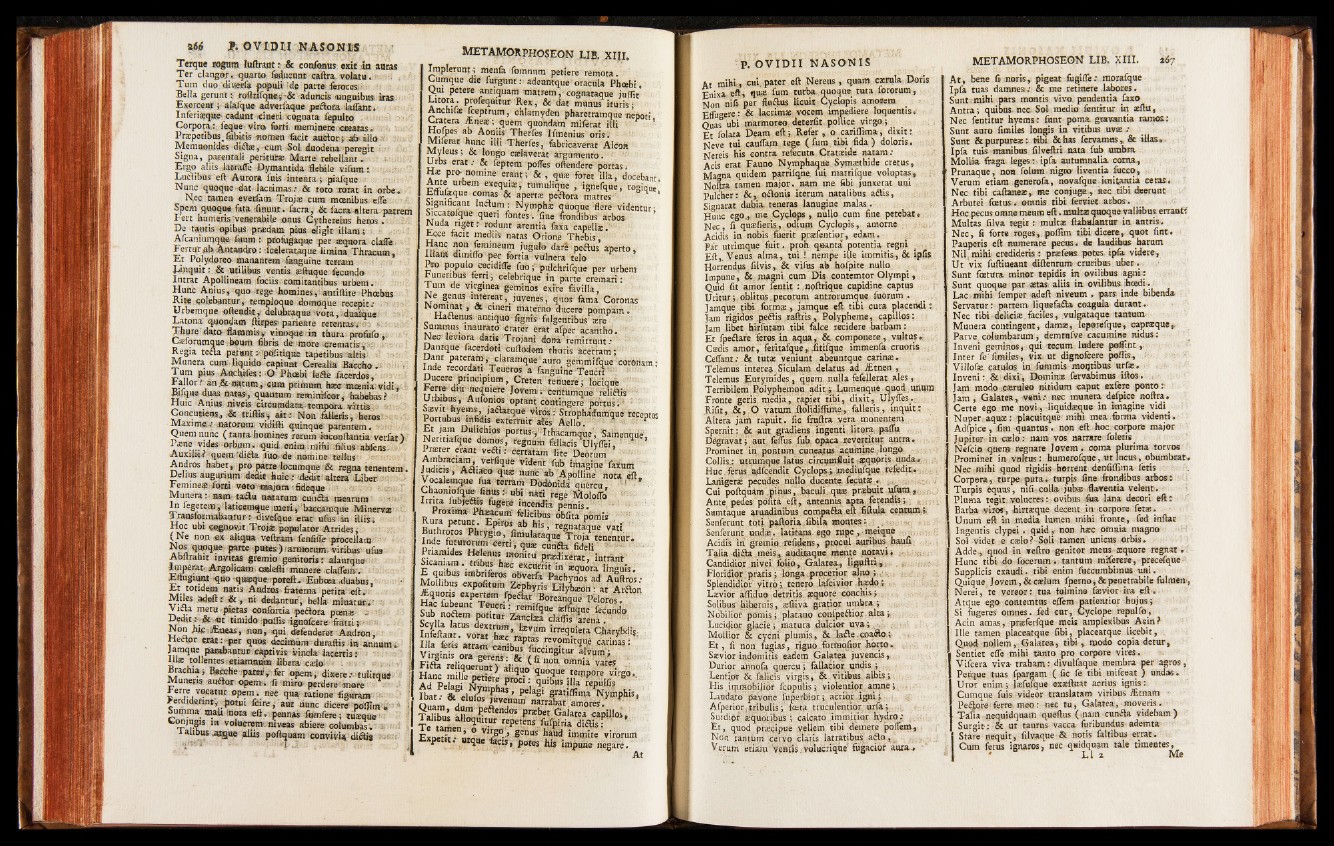 266 P. OVIDII NASONIS
Terque rogum lustrant: & consonus exit in auras
Ter clangor. quarto seducunt castra volatu.
Tum duo diversa populi de parte feroces
Bella gerunt: rostrisque, & aduncis unguibus iras
Exercent; alasque adversaque pectora lassant.
Inferiæque cadunt cineri cognata sepulto
Corpora: seque viro forti meminere creatas.
Præpetibus subitis nomen facit auctor; ab illo
Memnonides dictæ, cum Sol duodena peregit
Signa, parentali perituræ Marte rebellant.
Ergo aliis latrasse Dymantida flebile visum:
Luctibus est Aurora suis intenta; piasque
Nunc quoque dat lacrimas: & toto rorat in orbe.
Nec tamen eversam Trojæ cum mœnibus esse
Spem quoque fata sinunt. sacra, & sacra altera patrem
Fert humeris venerabile onus Cythereius heros.
De tantis opibus prædam pius eligit illam;
Ascaniumque suum: profugaque per æquora classe
Fertur ab Antandro: scelerataque limina Thracum,
Et Polydoreo manantem sanguine terram
Linquit: & utilibus ventis æstuque secundo
Intrat Apollineam sociis comitantibus urbem.
Hunc Anius, quo rege homines, antistite Phœbus
Rite colebantur, temploque domoque recepit:
Urbemque ostendit, delubraque vota, duasque
Latona quondam stirpes pariente retentas.
Thure dato flammis, vinoque in thura profuso,
Cæsorumque boum fibris de more crematis,
Regia tecta petunt: positique tapetibus altis
Munera cum liquido capiunt Cerealia Baccho.
Tum pius Anchises: O Phœbi lecte sacerdos,
Fallor? an & natum, cum primum hæc mœnia vidi,
Bisque duas natas, quantum reminiscor, habebas?
Huic Anius niveis circumdata tempora vittis
Concutiens, & tristis, ait: Non falleris, heros
Maxime: natorum vidisti quinque parentem.
Quem nunc (tanta homines rerum inconstantia versat)
Pæne vides orbum. quid enim mihi filius absens
Auxilii? quem dicta suo de nomine tellus
Andros habet, pro patre locumque & regna tenentem.
Delius augurium dedit huic: dedit altera Liber
Femineæ stirpi voto majora fideque
Munera: nam tactu natarum cuncta mearum
In segetem, laticemque meri, baccamque Minervæ
Transformabantur: divesque erat usus in illis.
Hoc ubi cognovit Trojæ populator Atrides;
(Ne non ex aliqua vestram sensisse procellam
Nos quoque parte putes) armorum viribus usus
Abstrahit invitas gremio genitoris: alantque
Imperat Argolicam cœlesti munere classem.
Effugiunt quo quæque potest. Eubœa duabus,
Et totidem natis Andros fraterna petita est.
Miles adest: &, ni dedantur, bella minatur.
Victa metu pietas consortia pectora pœnæ
Dedit: & ut timido possis ignoscere fratri;
Non hic Æneas, non, qui defenderet Andron,
Hector erat: per quos decimum durastis in annum.
Jamque parabantur captivis vincla lacertis:
Illæ tollentes etiamnum libera cælo
Brachia; Bacche pater, fer opem, dixere: tulitque
Muneris auctor opem. si miro perdere more
Ferre vocatur opem. nec qua ratione figuram
Perdiderint, potui scire, aut nunc dicere possim.
Summa mali nota est. pennas sumsere: tuæque
Conjugis in volucrem niveas abiere columbas.
Talibus atque aliis postquam convivia dictis
METAMORPHOSEON LIB. XIII.
Implerunt; mensa somnum petiere remota.
Cumque die surgunt: adeuntque oracula Phœbi,
Qui petere antiquam matrem, cognataque jussit
Litora. prosequitur Rex, & dat munus ituris;
Anchisæ sceptrum, chlamyden pharetramque nepoti,
Cratera Æneæ: quem quondam miserat illi
Hospes ab Aoniis Therses Ismenius oris.
Miserat hunc illi Therses, fabricaverat Alcon
Myleus: & longo cælaverat argumento.
Urbs erat: & septem posses ostendere portas.
Hæ pro nomine erant; &, quæ foret illa, docebant.
Ante urbem exequiæ, tumulique, ignesque, rogique,
Effusæque comas & apertæ pectora matres
Significant luctum: Nymphæ quoque flere videntur;
Siccatosque queri fontes. sine frondibus arbos
Nuda riget: rodunt arentia saxa capellæ.
Ecce facit mediis natas Orione Thebis,
Hanc non femineum jugulo dare pectus aperto,
Illam dimisso per fortia vulnera telo
Pro populo cecidisse suo; pulchrisque per urbem
Funeribus ferri; celebrique in parte cremari:
Tum de virginea geminos exire favilla,
Ne genus intereat, juvenes, quos fama Coronas
Nominat, & cineri materno ducere pompam.
Hactenus antiquo signis fulgentibus ære
Summus inaurato crater erat asper acantho.
Nec leviora datis Trojani dona remittunt:
Dantque sacerdoti custodem thuris acerram;
Dant pateram, claramque auro gemmisque coronam:
Inde recordati Teucros a sanguine Teucri
Ducere principium, Creten tenuere; locique
Ferre diu nequiere Jovem. centumque relictis
Urbibus, Ausonios optant contingere portus.
Sævit hyems, jactatque viros: Strophadumque receptos
Portubus infidis exterruit ales Aello.
Et jam Dulichios portus, Ithacamque, Samenque,
Neritiasque domos, regnum fallacis Ulyssei,
Præter erant vecti: certatam lite Deorum
Ambraciam, versique vident sub imagine saxum
Judicis, Actiaco quæ nunc ab Apolline nota est,
Vocalemque sua terram Dodonida quercu,
Chaoniosque sinus: ubi nati rege Molosso
Irrita subjectis fugere incendia pennis.
Proxima Phæacum felicibus obsita pomis
Rura petunt. Epiros ab his, regnataque vati
Buthrotos Phrygio, simulataque Troja tenentur.
Inde futurorum certi, quæ cuncta fideli
Priamides Helenus monitu prædixerat, intrant
Sicaniam. tribus hæc excurrit in æquora linguis.
E quibus imbriferos obversa Pachynos ad Austros:
Mollibus expositum Zephyris Lilybæon: at Arcton
Æquoris expertem spectat Boreanque Peloros.
Hac subeunt Teucri: remisque æstuque secundo
Sub noctem potitur Zanclæa classis arena.
Scylla latus dextrum, lævum irrequieta Charybdis
Infestant. vorat hæc raptas revomitque carinas:
Illa feris atram canibus succingitur alvum;
Virginis ora gerens: & (si non omnia vates
Ficta reliquerunt) aliquo quoque tempore virgo.
Hanc mille petiere proci: quibus illa repulsis
Ad Pelagi Nymphas, pelagi gratissima Nymphis,
Ibat: & elusos juvenum narrabat amores.
Quam, dum pectendos præbet Galatea capillos,
Talibus alloquitur repetens suspiria dictis:
Te tamen, o virgo, genus haud immite virorum
Expetit: utque facis, potes his impune negare.
At
P. OVIDII NASONIS
At mihi, cui pater est Nereus, quam cærula Doris
Enixa est, quæ sum turba quoque tuta sororum,
Non nisi per fluctus licuit Cyclopis amorem
Effugere: & lacrimæ vocem impediere loquentis.
Quas ubi marmoreo detersit pollice virgo;
Et solata Deam est; Refer, o carissima, dixit:
Neve tui caussam tege (sum tibi fida) doloris.
Nereis his contra resecuta Cratæide natam:
Acis erat Fauno Nymphaque Symæthide cretus,
Magna quidem patrisque sui matrisque voluptas,
Nostra tamen major. nam me sibi junxerat uni
Pulcher: &, octonis iterum natalibus actis,
Signarat dubia teneras lanugine malas.
Hunc ego, me Cyclops, nullo cum fine petebat.
Nec, si quæsieris, odium Cyclopis, amorne
Acidis in nobis fuerit præsentior, edam.
Par utrimque fuit. proh quanta potentia regni
Est, Venus alma, tui! nempe ille immitis, & ipsis
Horrendus silvis, & visus ab hospite nullo
Impune, & magni cum Dis contemtor Olympi,
Quid sit amor sentit: nostrique cupidine captus
Uritur; oblitus pecorum antrorumque suorum.
Jamque tibi formæ, jamque est tibi cura placendi:
Jam rigidos pectis rastris, Polypheme, capillos:
Jam libet hirsutam tibi falce recidere barbam:
Et spectare feros in aqua, & componere, vultus.
Cædis amor, feritasque, sitisque immensa cruoris
Cessant: & tutæ veniunt abeuntque carinæ.
Telemus interea Siculam delatus ad Ætnen,
Telemus Eurymides, quem nulla fefellerat ales,
Terribilem Polyphemon adit; Lumenque quod unum
Fronte geris media, rapiet tibi, dixit, Ulysses.
Risit, &, O vatum stolidissime, falleris, inquit:
Altera jam rapuit. sic frustra vera monentem
Spernit: & aut gradiens ingenti litora passu
Degravat; aut fessus sub opaca revertitur antra.
Prominet in pontum cuneatus acumine longo
Collis: utrumque latus circumfluit æquoris unda.
Huc ferus adscendit Cyclops; mediusque resedit.
Lanigeræ pecudes nullo ducente secutæ.
Cui postquam pinus, baculi quæ præbuit usum,
Ante pedes posita est, antennis apta ferendis;
Sumtaque atundinibus compacta est fistula centum;
Senserunt toti pastoria sibila montes:
Senserunt undæ. latitans ego rupe, meique
Acidis in gremio residens, procul auribus hausi
Talia dicta meis, auditaque mente notavi.
Candidior nivei folio, Galatea, ligustri,
Floridior pratis; longa procerior alno;
Splendidior vitro; tenero lascivior hædo;
Lævior assiduo detritis æquore conchis;
Solibus hibernis, æstiva gratior umbra;
Nobilior pomis; platano conspectior alta;
Lucidior glacie, matura dulcior uva;
Mollior & cycni plumis, & lacte coacto;
Et, si non fugias, riguo formosior horto.
Sævior indomitis eadem Galatea juvencis,
Durior annosa quercu; fallacior undis;
Lentior & salicis virgis, & vitibus albis;
His immobilior scopulis; violentior amne;
Laudato pavone superbior; acrior igni;
Asperior tribulis; fœta truculentior ursa;
Surdior æquoribus; calcato immitior hydro;
Et, quod præcipue vellem tibi demere possem,
Non tantum cervo claris latratibus acto,
Verum etiam ventis volucrique fugacior aura.
METAMORPHOSEON LIB. XIII. 267
At, bene si noris, pigeat fugisse: morasque
Ipsa tuas damnes: & me retinere labores.
Sunt mihi pars montis vivo pendentia saxo
Antra; quibus nec Sol medio sentitur in æstu,
Nec sentitur hyems: sunt poma gravantia ramos:
Sunt auro similes longis in vitibus uvæ:
Sunt & purpureæ: tibi & has servamus, & illas.
Ipsa tuis manibus silvestri nata sub umbra
Mollia fraga leges: ipsa autumnalia corna,
Prunaque, non solum nigro liventia succo,
Verum etiam generosa, novasque imitantia ceras.
Nec tibi castaneæ, me conjuge, nec tibi deerunt
Arbutei fœtus. omnis tibi serviet arbos.
Hoc pecus omne meum est. multæ quoque vallibus errant:
Multas silva tegit: multæ stabulantur in antris.
Nec, si forte roges, possim tibi dicere, quot sint.
Pauperis est numerare pecus. de laudibus harum
Nil mihi credideris: præsens potes ipsa videre,
Ut vix sustineant distentum cruribus uber.
Sunt fœtura minor tepidis in ovilibus agni:
Sunt quoque par ætas aliis in ovilibus hœdi.
Lac mihi semper adest niveum. pars inde bibenda
Servatur: partem liquefacta coagula durant.
Nec tibi deliciæ faciles, vulgataque tantum
Munera contingent, damæ, leporesque, capræque,
Parve columbarum, demtusve cacumine nidus:
Inveni geminos, qui tecum ludere possint,
Inter se similes, vix ut dignoscere possis,
Villosæ catulos in summis montibus ursæ.
Inveni: & dixi, Dominæ servabimus istos.
Jam modo cæruleo nitidum caput exsere ponto:
Jam, Galatea, veni: nec munera despice nostra.
Certe ego me novi, liquidæque in imagine vidi
Nuper aquæ: placuitque mihi mea forma videnti.
Adspice, sim quantus. non est hoc corpore major
Jupiter in cælo: nam vos narrare soletis
Nescio quem regnare Jovem. coma plurima torvos
Prominet in vultus: humerosque, ut lucus, obumbrat.
Nec mihi quod rigidis horrent densissima setis
Corpora, turpe puta. turpis sine frondibus arbos:
Turpis equus, nisi colla jubæ flaventia velent.
Pluma tegit volucres: ovibus sua lana decori est:
Barba viros, hirtæque decent in corpore setæ.
Unum est in media lumen mihi fronte, sed instar
Ingentis clypei. quid, non hæc omnia magno
Sol videt e cælo? Soli tamen unicus orbis.
Adde, quod in vestro genitor meus æquore regnat.
Hunc tibi do socerum. tantum miserere, precesque
Supplicis exaudi. tibi enim succumbimus uni.
Quique Jovem, & cælum sperno, & penetrabile fulmen,
Nerei, te vereor: tua fulmine sævior ira est.
Atque ego contemtus essem patientior hujus;
Si fugeres omnes. sed cur, Cyclope repulso,
Acin amas, præfersque meis amplexibus Acin?
Ille tamen placeatque sibi, placeatque licebit,
Quod nollem, Galatea, tibi, modo copia detur,
Sentiet esse mihi tanto pro corpore vires.
Viscera viva traham: divulsaque membra per agros,
Perque tuas spargam (sic se tibi misceat) undas.
Uror enim; læsusque exæstuat acrius ignis:
Cumque suis videor translatam viribus Ætnam
Pectore ferre meo: nec tu, Galatea, moveris.
Talia nequidquam questus (nam cuncta videbam)
Surgit: & ut taurus vacca furibundus ademta
Stare nequit, silvaque & notis saltibus errat.
Cum ferus ignaros, nec quidquam tale timentes,
Ll 2 Me